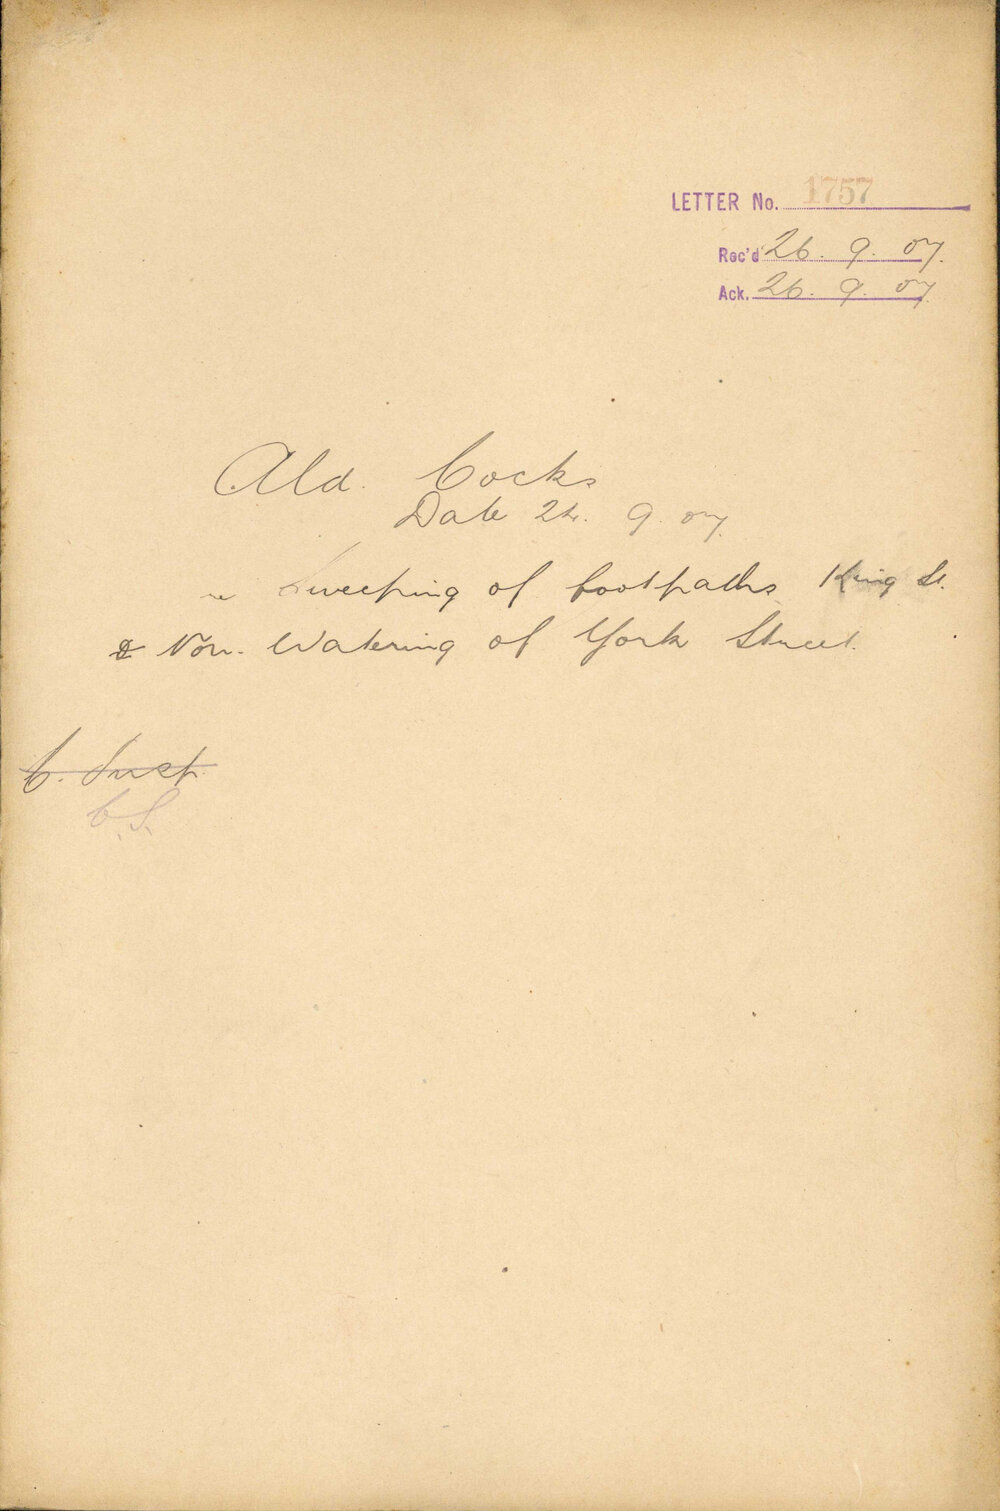 LETTER No. 1757
Rec'd 26. 9. 07.
Ack. 26. 9. 07
Ald. Cocks
Date 24. 9. 07.
re Sweeping of footpaths King St.
& Non. Watering of York Street.
C. Insp.
C.S.